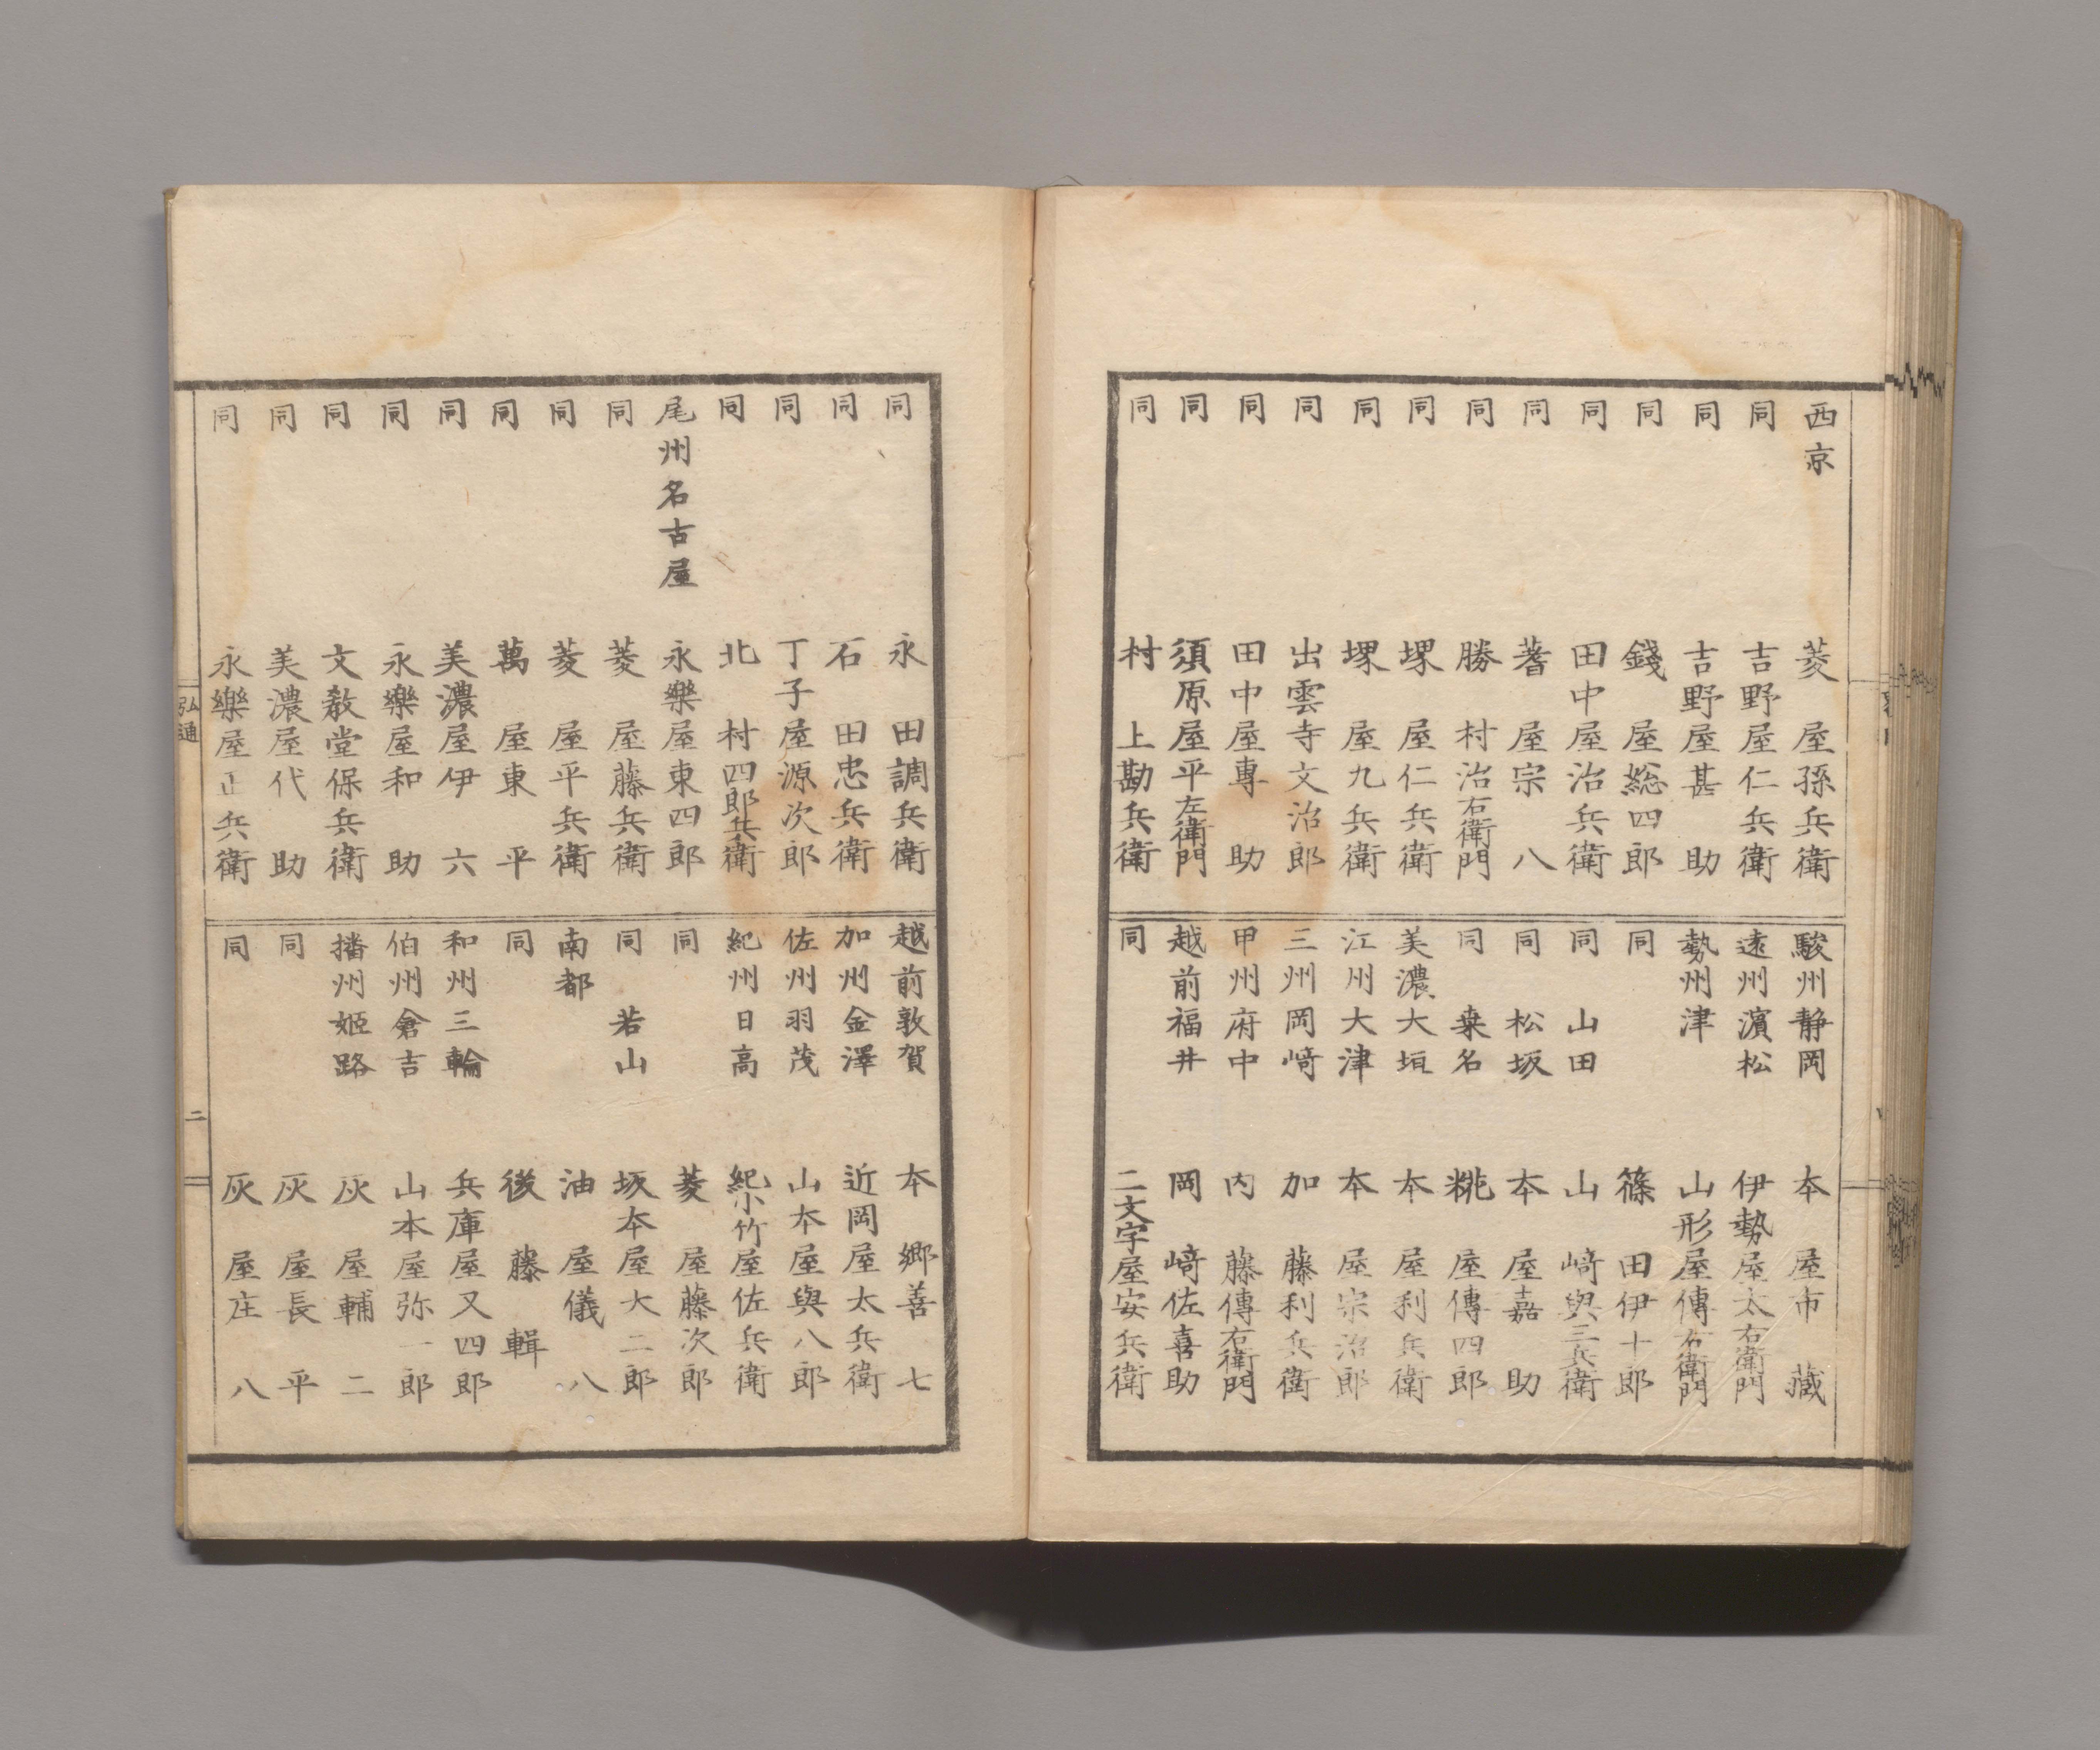 西京 菱屋孫兵衛
同 吉野屋仁兵衛
同 吉野屋甚助
同 錢屋総四郎
同 田中屋治兵衛
同 蓍屋宗八
同 勝村治右衛門
同 堺屋仁兵衛
同 堺屋九兵衛
同 出雲寺文治郎
同 田中屋專助
同 須原屋平左衛門
同 村上勘兵衛
駿州静岡 本屋市藏
遠州濱松 伊勢屋太右衛門
勢州津 山形屋傳右衛門
同 篠田伊十郎
同 山田 山﨑與三兵衛
同 松坂 本屋嘉助
同 桒名 粇屋傳四郎
美濃大垣 本屋利兵衛
江州大津 本屋宗治郎
三州岡﨑 加藤利兵衛
甲州府中 内藤傳右衛門
越前福井 岡﨑佐喜助
同 二文字屋安兵衛
同 永田調兵衛
同 石田忠兵衛
同 丁子屋源次郎
同 北村四郎兵衛
尾州名古屋 永樂屋東四郎
同 菱屋藤兵衛
同 菱屋平兵衛
同 萬屋東平
同 美濃屋伊六
同 永樂屋和助
同 文敎堂保兵衛
同 美濃屋代助
同 永樂屋正兵衛
越前敦賀 本郷善七
加州金澤 近岡屋太兵衛
佐州羽茂 山本屋與八郎
紀州日高 紀小竹屋佐兵衛
同 菱屋藤次郎
同 若山 坂本屋大二郎
南都 油屋儀八
同 後藤輯
和州三輪 兵庫屋又四郎
伯州倉吉 山本屋弥一郎
播州姬路 灰屋輔二
同 灰屋長平
同 灰屋庄八
弘通 二